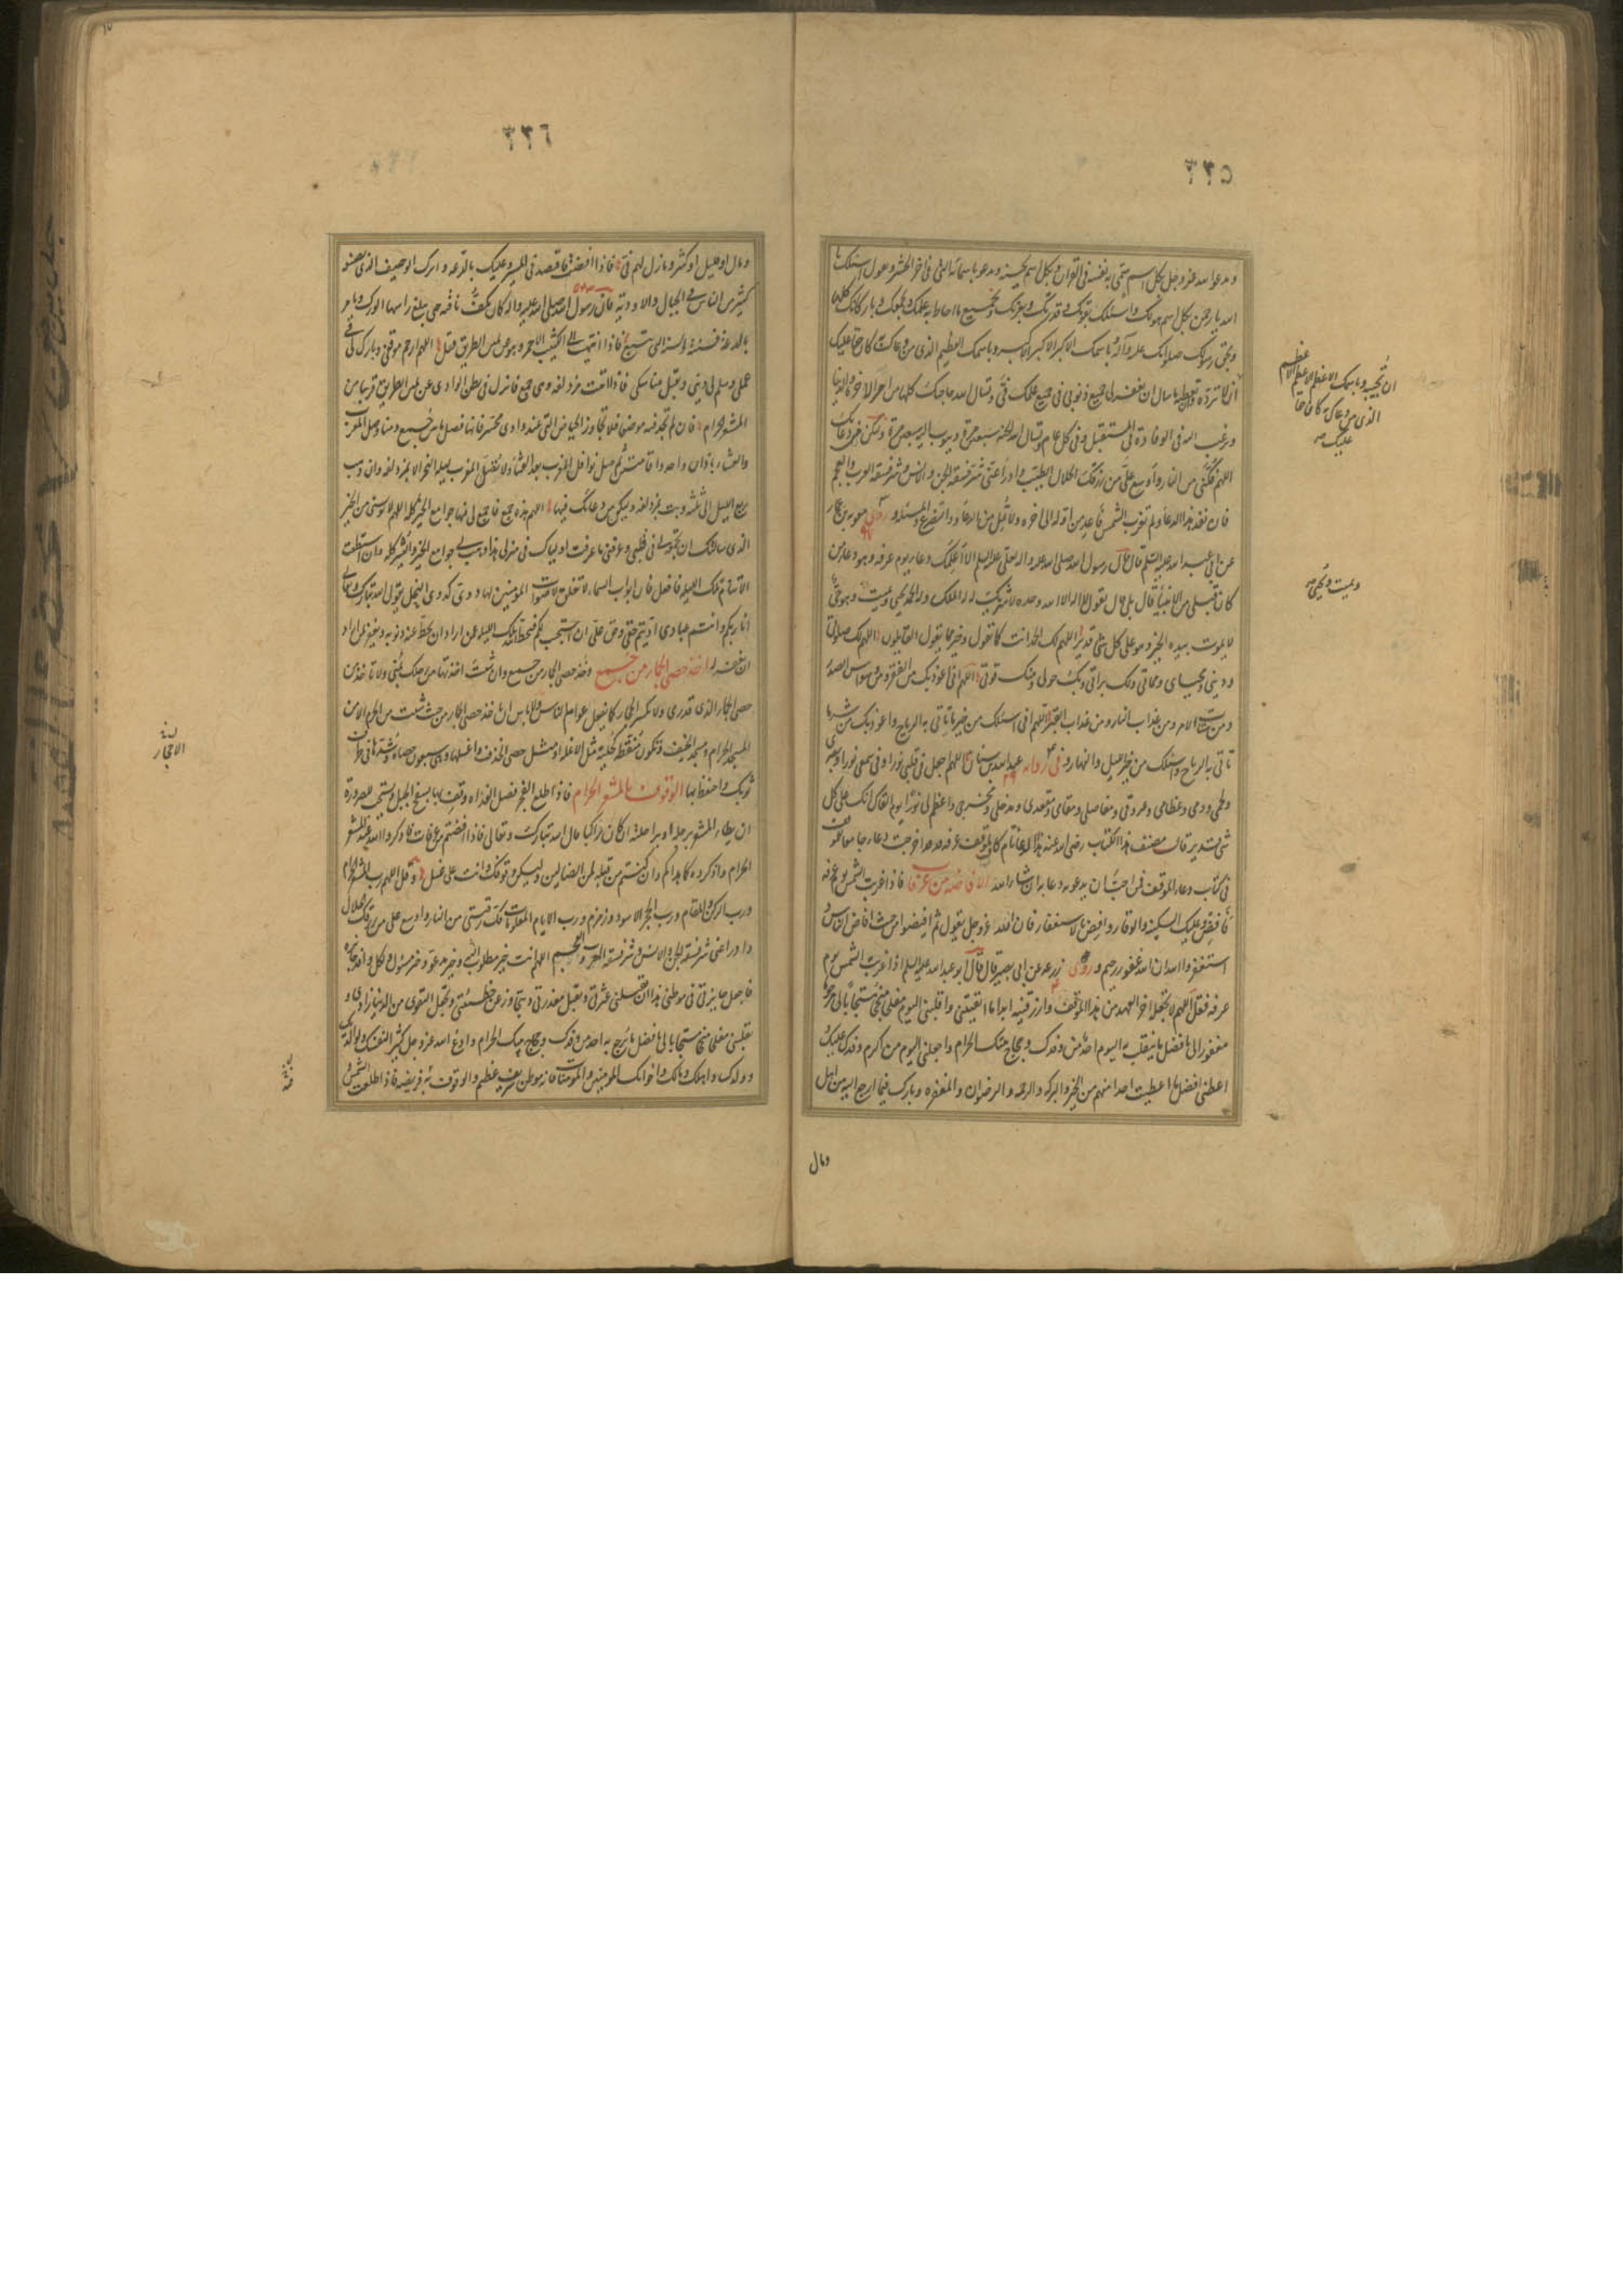 ٣٢٥
وتدعو الله عز وجل بكل اسم سمى به نفسه فى القران وبكل اسم يحسنه وتدعو باسمائه التى فى اخر الحشر وتقول اسئلك يا
الله يا رحمن بكل اسم هو لك واسئلك بقوتك وقدرتك وبعزتك وبجميع ما احاط به علمك وبجمعك وباركانك كلها
وبحق رسولك صلواتك عليه وآله وباسمك الاكبر الاكبر الاكبر وباسمك العظيم الذى من دعاك به كان حقا عليك
ان لا ترده وان تعطيه ما سال ان تغفر لى جميع ذنوبى فى جميع علمك فى وتسال الله حاجتك كلها من امر الاخرة والدنيا
وترغب اليه فى الوفادة فى المستقبل وفى كل عام وتسال الله الجنة سبعين مرة وتتوب اليه سبعين مرة وليكن من دعائك
اللهم فكنى من النار واوسع على من رزقك الحلال الطيب وادرأ عنى شر فسقة الجن والانس وشر فسقة العرب والعجم
فان نفد هذا الدعاء ولم تغرب الشمس فاعده من اوله الى اخره ولا تمل من الدعاء والتضرع والمسئلة وروى معوية بن عمار
عن ابى عبد الله عليه السلم قال قال رسول الله صلى الله عليه واله لعلى عليه السلم الا اعلمك دعاء يوم عرفه وهو دعاء من
كان قبلى من الانبياء قال بلى قال تقول لا اله الا الله وحده لا شريك له له الملك وله الحمد يحيى ويميت وهو حى
لا يموت بيده الخير وهو على كل شئ قدير اللهم لك الحمد انت كما تقول وخير ما يقول القايلون اللهم لك صلاتى
ودينى ومحياى ومماتى ولك براتى وبك حولى ومنك قوتى اللهم انى اعوذ بك من الفقر ومن وسواس الصدر
ومن شتات الامر ومن عذاب النار ومن عذاب القبر اللهم انى اسئلك من خير ما تاتى به الرياح واعوذ بك من شر ما
تاتى به الرياح واسئلك من خير الليل والنهار وفى رواية عبد الله بن سنان اللهم اجعل فى قلبى نورا وفى سمعى نورا وبصرى
ولحمى ودمى وعظامى وعروقى ومفاصلى ومقامى ومقعدى ومدخلى ومخرجى واعظم لى نورا يوم القاك انك على كل
شئ قدير قال مصنف هذا الكتاب رضى الله عنه هذا الدعاء تام كاف لموقف عرفه وقد اخرجت دعاء جامعا لموقف
فى كتاب دعاء الموقف فمن احب ان يدعو به دعا به ان شاء الله الافاضه من عرفات فاذا غربت الشمس يوم عرفه
فافض وعليك السكينه والوقار وافض بالاستغفار فان الله عز وجل يقول ثم افيضوا من حيث افاض الناس و
استغفروا الله ان الله غفور رحيم وروى زرعه عن ابى بصير قال قال ابو عبد الله عليه السلم اذا غربت الشمس يوم
عرفه فقل اللهم لا تجعله اخر العهد من هذا الموقف وارزقنيه ابدا ما ابقيتنى واقلبنى اليوم مفلحا منجحا مستجابا لى مرحوما
مغفورا لى بافضل ما ينقلب به اليوم احد من وفدك وحجاج بيتك الحرام واجعلنى اليوم من اكرم وفدك عليك و
اعطنى افضل ما اعطيت احدا منهم من الخير والبركه والرحمه والرضوان والمغفره وبارك لى فيما ارجع اليه من اهل
ومال
ان تجيبه وباسمك الاعظم الاعظم الاعظم
الذى من دعاك به كان حقا
عليك
ويميت ويحيى
٣٢٦
ومال او قليل او كثير وبارك لهم فى فاذا افضت فاقتصد فى السير وعليك بالدعة واترك الوجيف الذى يصنعه
كثير من الناس فى الجبال والاودية فان رسول الله صلى الله عليه واله كان يكف ناقته حتى يبلغ راسها الورك ويامر
بالدعة وسنته السنة التى تتبع فاذا انتهيت الى الكثيب الاحمر وهو عن يمين الطريق فقل اللهم ارحم موقفى وبارك لى فى
عملى وسلم لى دينى وتقبل مناسكى فاذا اتيت مزدلفه وهى جمع فانزل فى بطن الوادى عن يمين الطريق قريبا من
المشعر الحرام فان لم تجد فيه موضعا فلا تجاوز الحياض التى عند وادى محسر فانها فصل ما بين جمع ومنا وصل المغرب
والعشاء باذان واحد واقامتين ثم صل نوافل المغرب بعد العشاء ولا تصل المغرب ليلة النحر الا بمزدلفه وان ذهب
ربع الليل الى ثلثه وبت بمزدلفه وليكن من دعائك فيها اللهم هذه جمع فاجمع لى فيها جوامع الخير كله اللهم لا تويسنى من الخير
الذى سالتك ان تجمعه لى فى قلبى وعرفنى ما عرفت اولياك فى منزلى هذا وهب لى جوامع الخير واليسر كله وان استطعت
الا تنام تلك الليله فافعل فان ابواب السماء لا تغلق لاصوات المؤمنين لها دوى كدوى النحل يقول الله تبارك وتعالى
انا ربكم وانتم عبادى اديتم حقى وحق على ان استجيب لكم فيحط تلك الليله عمن اراد ان يحط عنه ذنوبه ويغفر لمن اراد
ان يغفر له اخذ حصى الجمار من جمع وخذ حصى الجمار من جمع وان شئت اخذتها من رحلك بمنى ولا تاخذ من
حصى الجمار الذى قد رمى ولا تكسر الحجار كما يفعل عوام الناس ولا باس ان تاخذ حصى الجمار من حيث شئت من الحرم الا من
المسجد الحرام ومسجد الخيف وتكون منقطة كحلية مثل الانملة او مثل حصى الخذف واغسلها وهى سبعون حصاة وشدها فى طرف
ثوبك واحتفظ بها الوقوف بالمشعر الحرام فاذا طلع الفجر فصل الغداه وقف بها بسفح الجبل ويستحب للصرورة
ان يطاء المشعر برجله او براحلته ان كان راكبا قال الله تبارك وتعالى فاذا افضتم من عرفات فاذكروا الله عند المشعر
الحرام واذكروه كما هداكم وان كنتم من قبله لمن الضالين وليكن وقوفك وانت على غسل وقل اللهم رب المشعر الحرام
ورب الركن والمقام ورب الحجر الاسود وزمزم ورب الايام المعلومات فك رقبتى من النار واوسع على من رزقك الحلال
وادرا عنى شر فسقة الجن والانس وشر فسقة العرب والعجم اللهم انت خير مطلوب اليه وخير مدعو وخير مسئول ولكل وافد جائزة
فاجعل جايزتى فى موطنى هذا ان تقيلنى عثرتى وتقبل معذرتى وتجاوز عن خطيئتى وتجعل التقوى من الدنيا زادى و
تقلبنى مفلحا منجحا مستجابا لى بافضل ما يرجع به احد من وفدك وحجاج بيتك الحرام وادع الله عز وجل كثيرا لنفسك ولوالديك
وولدك واهلك ومالك واخوانك المومنين والمومنات فانه موطن شريف عظيم والوقوف به فريضه فاذا طلعت الشمس